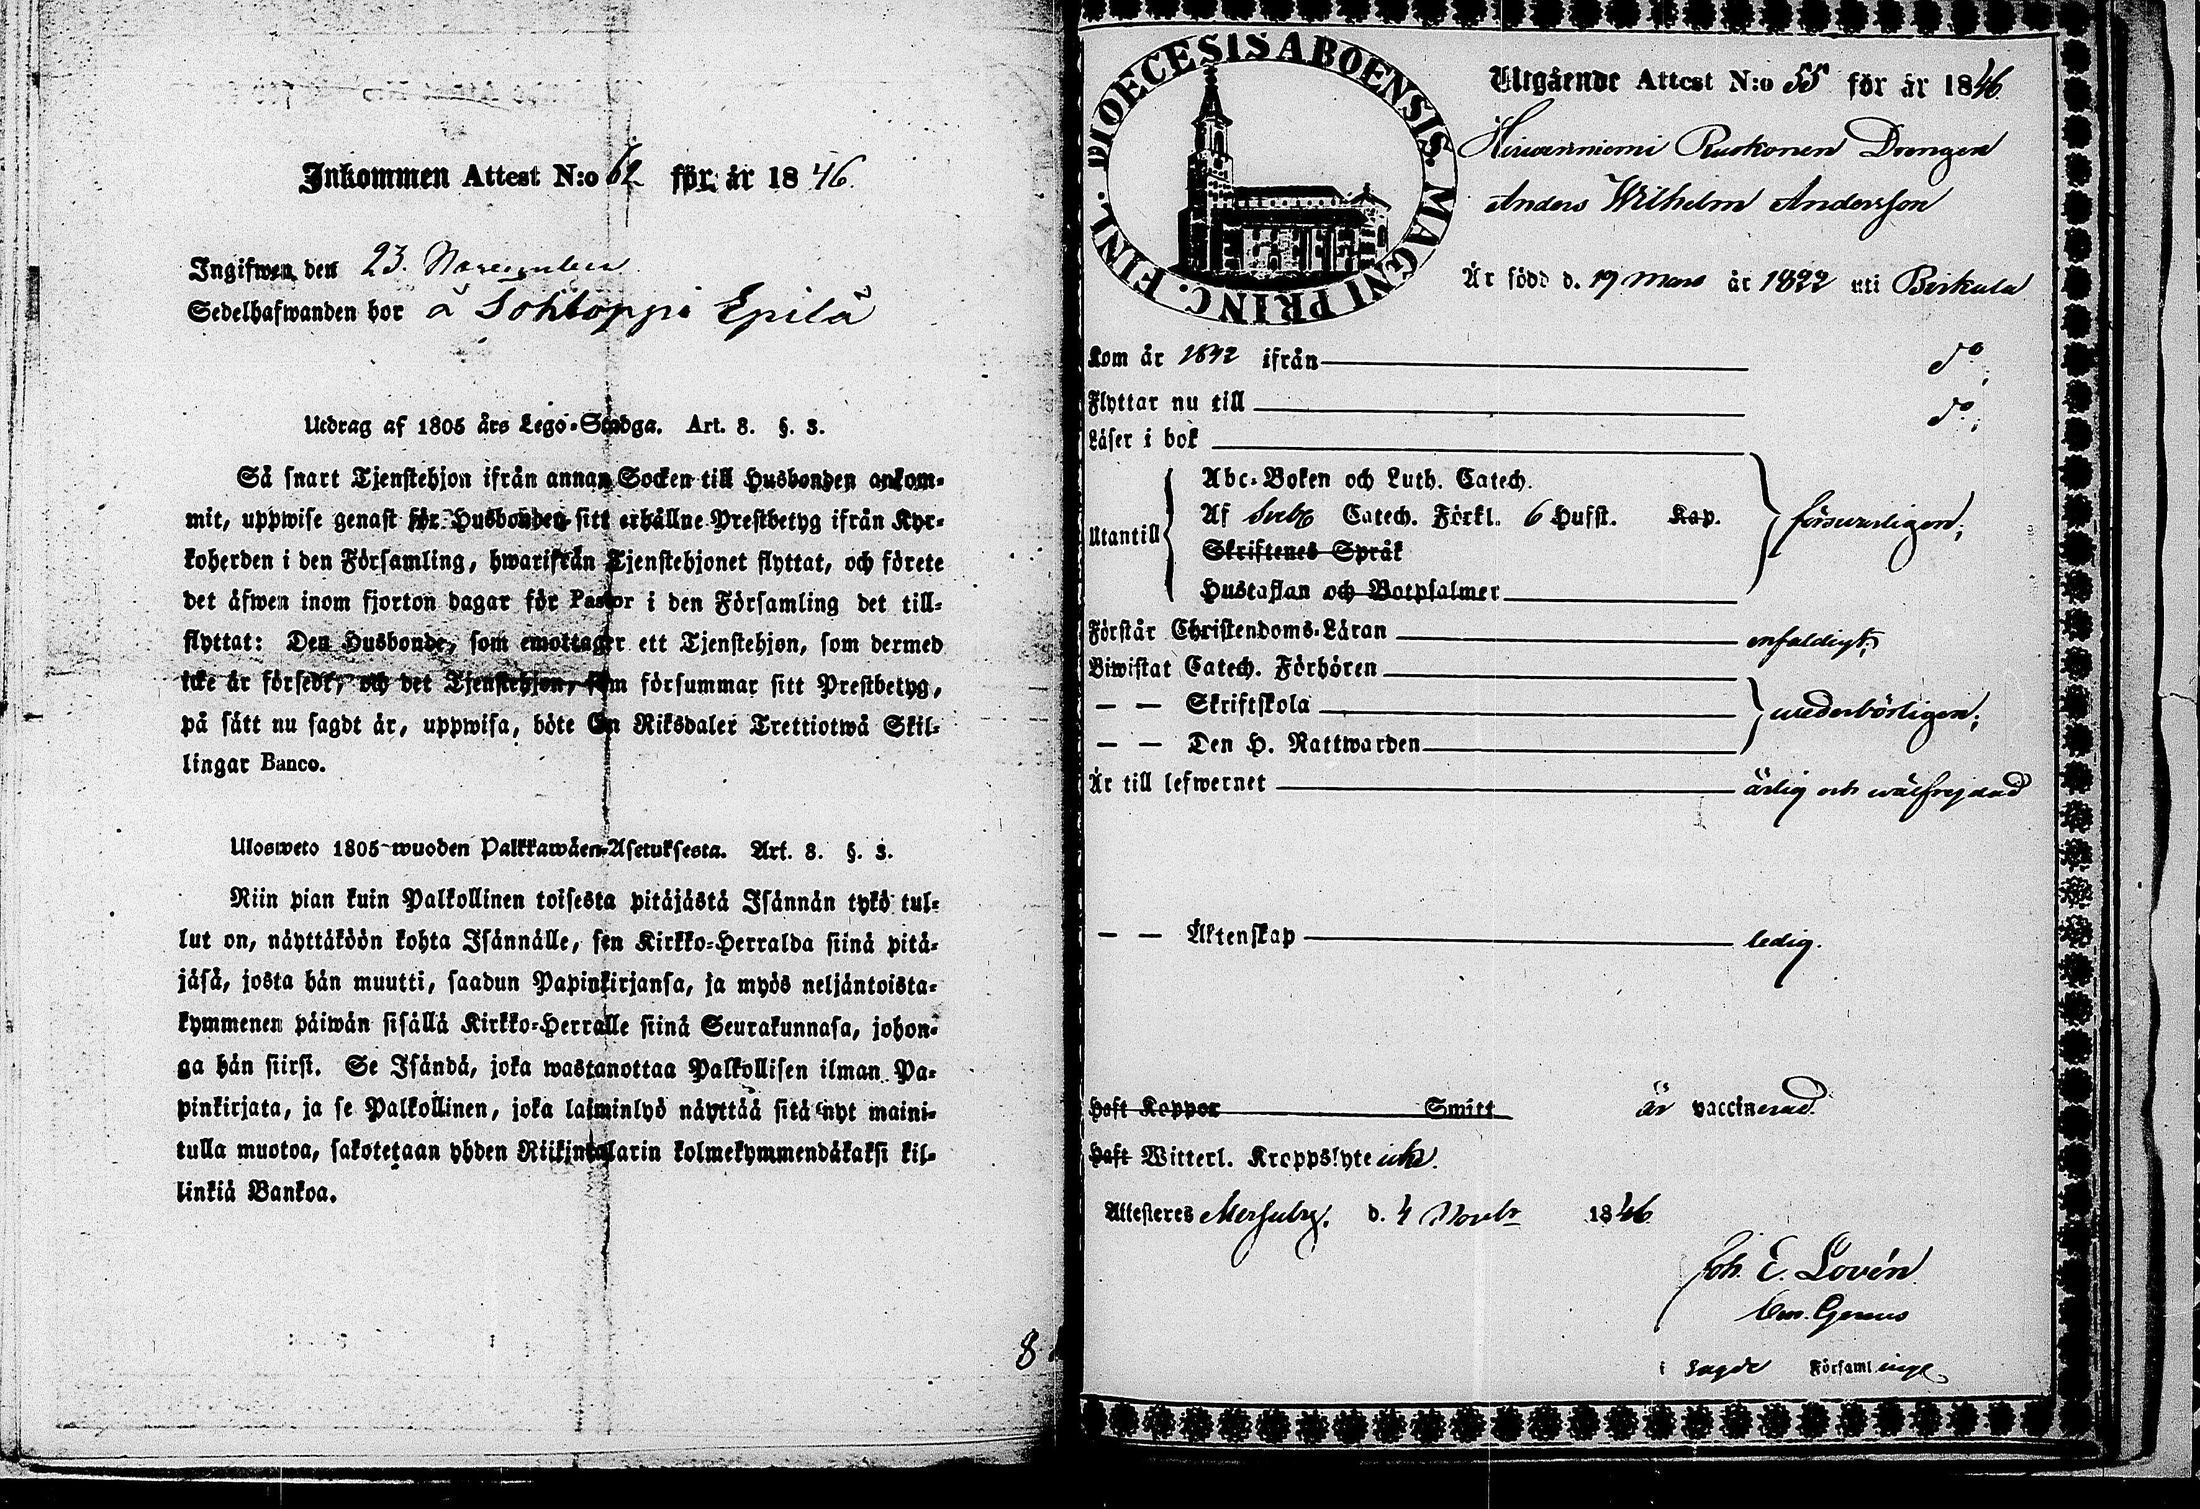 Inkommen Attest N:o 62 för år 1846.
Ingifwen den 23. November
Sedelhafwanden bor å Sohloppi Epilä
Utdrag af 1805 års Lego-Stadga. Art. 8. §. 3.
Så snart Tjenstehjon ifrån annan Socken till Husbonden ankom-
mit, uppwise genast för Husbonden sitt erhållne Prestbetyg ifrån Kyr-
koherden i den Församling, hwarifrån Tjenstehjonet flyttat, och förete
det äfwen inom fjorton dagar för Pastor i den Församling det till-
flyttat: Den Husbonde, som emottager ett Tjenstehjon, som dermed
icke är försedt, och det Tjenstehjon, som försummar sitt Prestbetyg,
på sätt nu sagdt är, uppwisa, böte En Riksdaler Trettiotwå Skil-
lingar Banco.
Ulosweto 1805 wuoden Palkkawäen-Asetuksesta. Art. 8. §. 3.
Niin pian kuin Palkollinen toisesta pitäjästä Isännän tykö tul-
lut on, näyttäköön kohta Isännälle, sen Kirkko-Herralda siinä pitä-
jäsä, josta hän muutti, saadun Papinkirjansa, ja myös neljäntoista-
kymmenen päiwän sisällä Kirkko-Herralle siinä Seurakunnasa, johon-
ga hän siirst. Se Isändä, joka wastanottaa Palkollisen ilman Pa-
pinkirjata, ja se Palkollinen, joka laiminlyö näyttää sitä nyt maini-
tulla muotoa, sakotetaan yhden Riikintalarin kolmekymmendäkaksi kil-
linkiä Bankoa.
8
DIOECESIS ABOENSIS. MAGNI PRINC. FINL.
Utgående Attest N:o 55 för år 1846.
Hirvenniemi Ruokonen Drengen
Anders Wilhelm Andersson
Är född d. 19 Mars år 1822 uti Birkala
Kom år 1842 ifrån do;
Flyttar nu till do;
Läser i bok
Abc-Boken och Luth. Catech.
Utantill Af Sveb. Catech. Förkl. 6 Hufst. Kap. försvarligen;
Skriftenes Språk
Hustaflan och Botpsalmer
Förstår Christendoms-Läran enfaldigt;
Biwistat Catech. Förhören
— — Skriftskola wederbörligen;
— — Den H. Nattwarden
Är till lefwernet ärlig och wälfrejdad
— — Äktenskap ledig.
Haft Koppor Smitt är vaccinerad.
Haft Witterl. Kroppslyte icke.
Attesteres Messuby, d. 4 Novbr 1846
Joh. E. Lovén
i sagde Församlinge